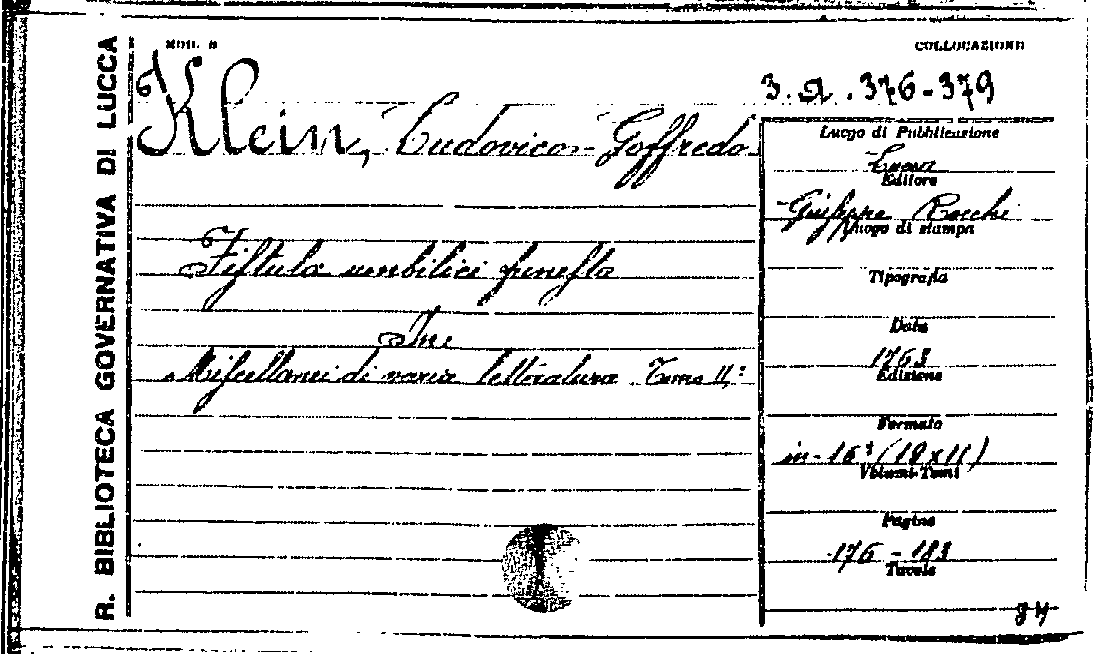 R. BIBLIOTECA GOVERNATIVA DI LUCCA
MOD. B
COLLOCAZIONE
3. a. 376-379
Klein, Ludovico-Goffredo
Luogo di Pubblicazione
Lucca
Editore
Giuseppe Rocchi
Luogo di stampa
Fistula umbilici funesta
Tipografia
In:
Data
1763
Miscellanei di varia letteratura. Tomo II,°
Edizione
Formato
in-16° (18x11)
Volumi-Tomi
Pagine
176-183
Tavole
84